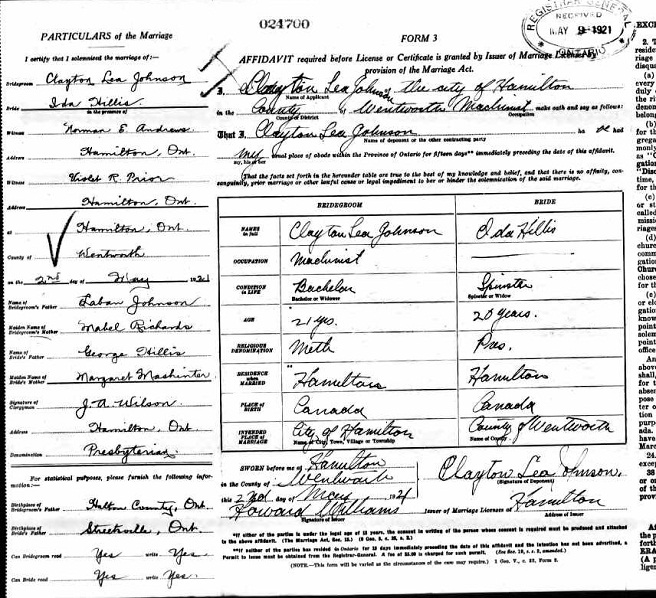 024700
REGISTRAR GENERAL
RECEIVED
MAY 9 1921
ONTARIO
PARTICULARS of the Marriage
I certify that I solemnized the marriage of:—
Bridegroom Clayton Lea Johnson
Bride Ida Hillis
in the presence of
Witness Norman E. Andrews
Address Hamilton, Ont.
Witness Violet R. Prior
Address Hamilton, Ont.
at Hamilton, Ont.
County of Wentworth
on the 2nd day of May 1921
Name of Bridegroom's Father Laban Johnson
Maiden Name of Bridegroom's Mother Mabel Richards
Name of Bride's Father George Hillis
Maiden Name of Bride's Mother Margaret Mashinter
Signature of Clergyman J. A. Wilson
Address Hamilton, Ont.
Denomination Presbyterian
For statistical purposes, please furnish the following information:—
Birthplace of Bridegroom's Father Halton County, Ont.
Birthplace of Bride's Father Streetsville, Ont.
Can Bridegroom read Yes write Yes.
Can Bride read Yes write Yes.
FORM 3
AFFIDAVIT required before License or Certificate is granted by Issuer of Marriage Licenses by
provision of the Marriage Act.
I, Clayton Lea Johnson, the city of Hamilton
Name of Applicant
in the County of Wentworth Machinist make oath and say as follows:
County or District
Occupation
That I Clayton Lea Johnson he had
Name of deponent or the other contracting party
my usual place of abode within the Province of Ontario for fifteen days** immediately preceding the date of this affidavit.
my, his or her
That the facts set forth in the hereunder table are true to the best of my knowledge and belief, and that there is no affinity, consanguinity, prior marriage or other lawful cause or legal impediment to bar or hinder the solemnization of the said marriage.
BRIDEGROOM BRIDE
NAMES in full Clayton Lea Johnson Ida Hillis
OCCUPATION Machinist
CONDITION IN LIFE Bachelor Spinster
Bachelor or Widower Spinster or Widow
AGE 21 yrs. 20 years.
RELIGIOUS DENOMINATION Meth Pres.
RESIDENCE when MARRIED Hamilton Hamilton
PLACE OF BIRTH Canada Canada
INTENDED PLACE OF MARRIAGE City of Hamilton County of Wentworth
Name of City, Town, Village or Township Name of County
SWORN before me at Hamilton
in the County of Wentworth
this 2nd day of May 1921
Howard Williams
Signature of Issuer
Clayton Lea Johnson,
(Signature of Deponent)
Issuer of Marriage Licenses at Hamilton
Address of Issuer
*If either of the parties is under the legal age of 18 years, the consent in writing of the person whose consent is required must be produced and attached
to the above affidavit. (The Marriage Act, Sec. 15.)
**If neither of the parties has resided in Ontario for 15 days immediately preceding the date of this affidavit and the intention has not been advertised, a
Permit to issue must be obtained from the Registrar-General. A fee of $5.00 is charged for such permit.
(NOTE.—This form will be varied as the circumstances of the case may require.) 1 Geo. V., c. 32, Form 3.